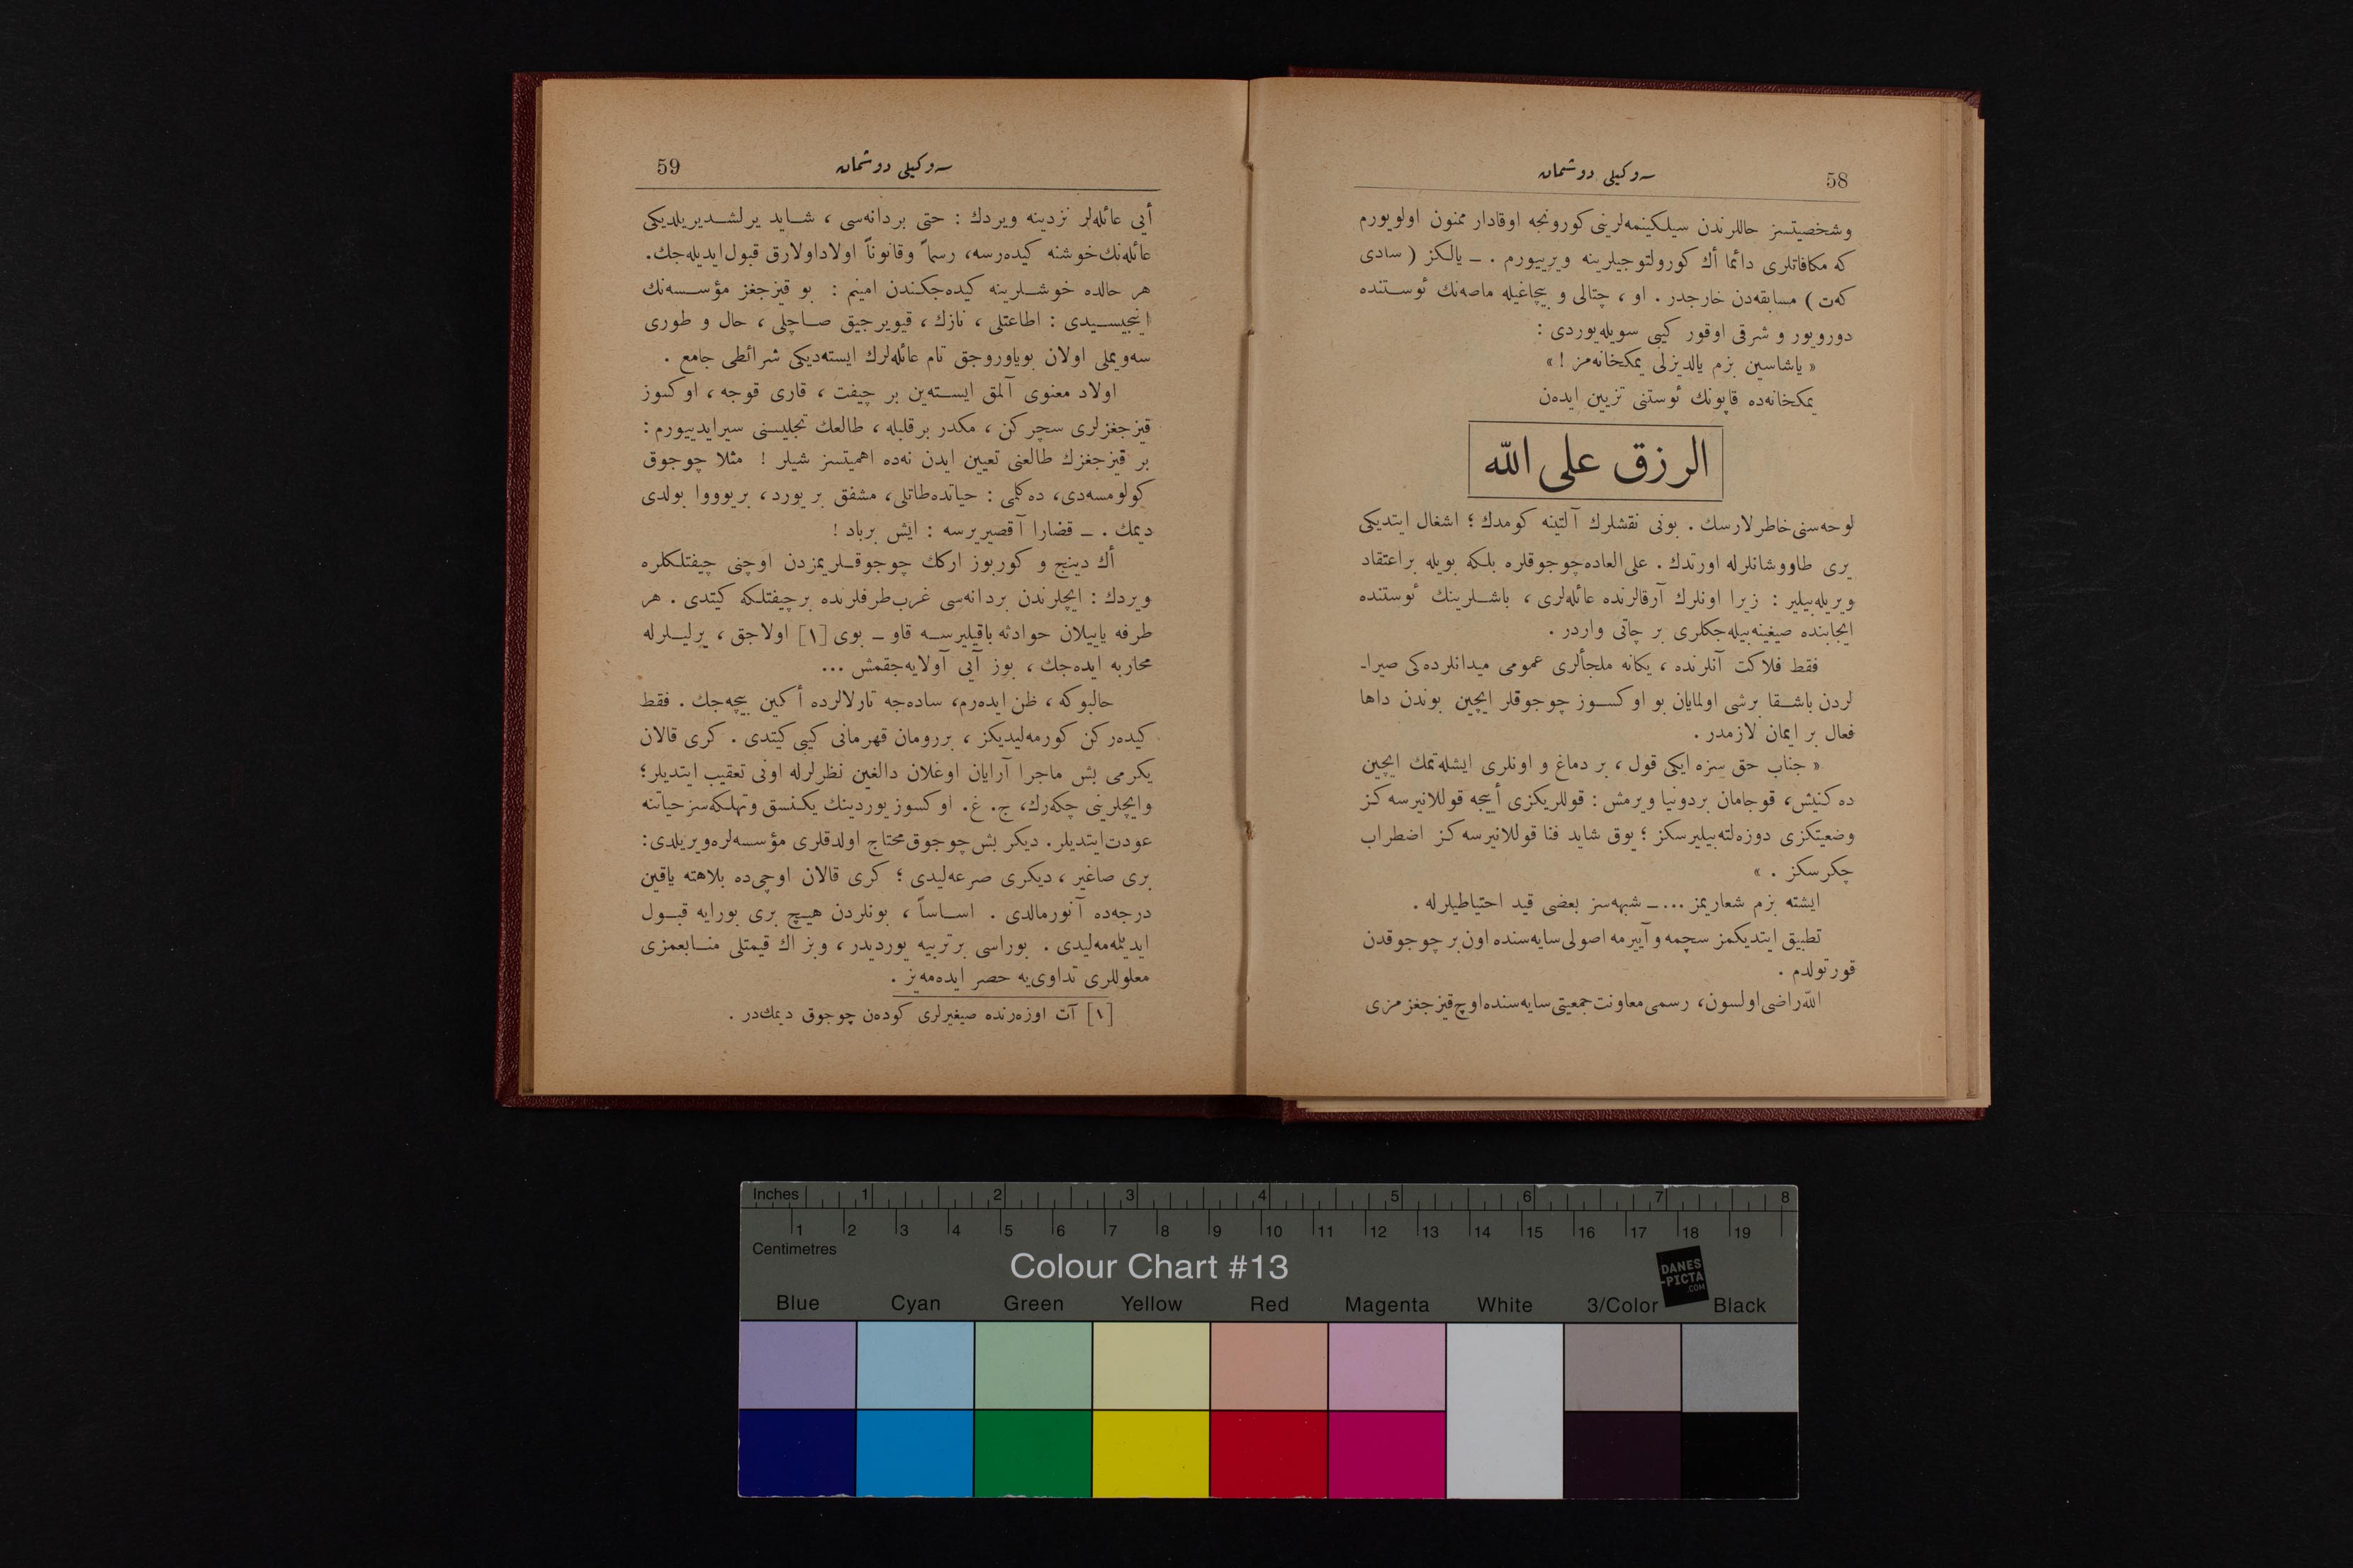 58
سوكیلی دوشمان
وشخصیتسز حاللرندن سیلكینمه‌لرینی كورونجه اوقادار ممنون اولویورم
كه مكافاتلری دائما أك كورولتوجیلرینه ویرییورم . ــ یالكز ( سادی
كه‌ت ) مسابقه‌دن خارجدر . او ، چتالی و بیچاغیله ماصه‌نك ئوستنده
دورویور و شرقی اوقور كیبی سویله‌یوردی :
« یاشاسین بزم یالدیزلی یمكخانه‌مز ! »
یمكخانه‌ده قاپونك ئوستنی تزیین ایده‌ن
الرزق علی الله
لوحه‌سنی خاطرلارسك . بونی نقشلرك آلتینه كومدك ؛ اشغال ایتدیكی
یری طاووشانلرله اورتدك . علی‌العاده چوجوقلره بلكه بویله بر اعتقاد
ویریله‌بیلیر : زیرا اونلرك آرقالرنده عائله‌لری ، باشلرینك ئوستنده
ایجابنده صیغینه‌بیله‌جكلری بر چاتی واردر .
فقط فلاكت آنلرنده ، یكانه ملجألری عمومی میدانلرده‌كی صیرا۔
لردن باشقا برشی اولمایان بو اوكسوز چوجوقلر ایچین بوندن داها
فعال بر ایمان لازمدر .
« جناب حق سزه ایكی قول ، بر دماغ و اونلری ایشله‌تمك ایچین
ده كنیش، قوجامان بردونیا ویرمش : قوللریكزی أییجه قوللانیرسه‌كز
وضعیتكزی دوزه‌لته‌بیلیرسكز ؛ یوق شاید فنا قوللانیرسه‌كز اضطراب
چكرسكز . »
ایشته بزم شعاریمز ... ــ شبهه‌سز بعضی قید احتیاطیلرله .
تطبیق ایتدیكمز سچمه و آییرمه اصولی سایه‌سنده اون بر چوجوقدن
قورتولدم .
الله راضی اولسون، رسمی معاونت جمعیتی سایه‌سنده اوچ قیزجغزمزی
59
سوكیلی دوشمان
أیی عائله‌لر نزدینه ویردك : حتی بردانه‌سی ، شاید یرلشدیریلدیكی
عائله‌نك خوشنه كیده‌رسه، رسماً وقانوناً اولاد اولارق قبول ایدیله‌جك.
هر حالده خوشلرینه كیده‌جكندن امینم : بو قیزجغز مؤسسه‌نك
اینجیسیدی : اطاعتلی ، نازك ، قیویرجیق صاچلی ، حال و طوری
سه‌ویملی اولان بویاوروجق تام عائله‌لرك ایسته‌دیكی شرائطی جامع .
اولاد معنوی آلمق ایسته‌ین بر چیفت ، قاری قوجه ، اوكسوز
قیزجغزلری سچركن ، مكدر برقلبله ، طالعك تجلیسنی سیرایدییورم :
بر قیزجغزك طالعنی تعیین ایدن نه‌ده اهمیتسز شیلر ! مثلا چوجوق
كولومسه‌دی، ده‌كلمی : حیاتده طاتلی، مشفق بر یورد، بریووا بولدی
دیمك . ــ قضارا آقصیریرسه : ایش برباد !
أك دینج و كوربوز اركك چوجوقلریمزدن اوچنی چیفتلكلره
ویردك : ایچلرندن بردانه‌سی غرب طرفلرنده برچیفتلكه كیتدی . هر
طرفه یاییلان حوادثه باقیلیرسه قاو ــ بوی [١] اولاجق ، یرلیلرله
محاربه ایده‌جك ، بوز آیی آولایه‌جقمش ...
حالبوكه ، ظن ایده‌رم، ساده‌جه تارلالرده أكین بیچه‌جك . فقط
كیده‌ركن كورمه‌لیدیكز ، بررومان قهرمانی كیبی كیتدی . كری قالان
یكرمی بش ماجرا آرایان اوغلان دالغین نظرلرله اونی تعقیب ایتدیلر ؛
وایچلرینی چكه‌رك، ج. غ. اوكسوز یوردینك یكنسق وتهلكه‌سز حیاتنه
عودت ایتدیلر. دیكر بش چوجوق محتاج اولدقلری مؤسسه‌لره ویریلدی :
بری صاغیر ، دیكری صرعه‌لیدی ؛ كری قالان اوچی‌ده بلاهته یاقین
درجه‌ده آنورمالدی . اساساً ، بونلردن هیچ بری بورایه قبول
ایدیله‌مه‌لیدی . بوراسی برتربیه یوردیدر ، وبز اك قیمتلی منابعمزی
معلوللری تداوی‌یه حصر ایده‌مه‌یز .
[١] آت اوزه‌رنده صیغیرلری كوده‌ن چوجوق دیمك‌در .
Inches 1 2 3 4 5 6 7 8
1 2 3 4 5 6 7 8 9 10 11 12 13 14 15 16 17 18 19
Centimetres
Colour Chart #13
DANES
-PICTA
.COM
Blue Cyan Green Yellow Red Magenta White 3/Color Black